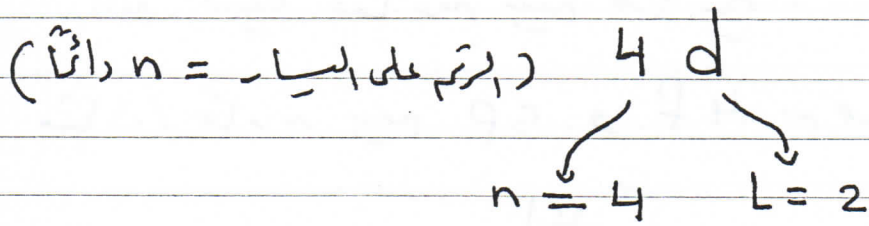 4 d (الرقم على اليسار = n دائمًا)
n = 4 L = 2